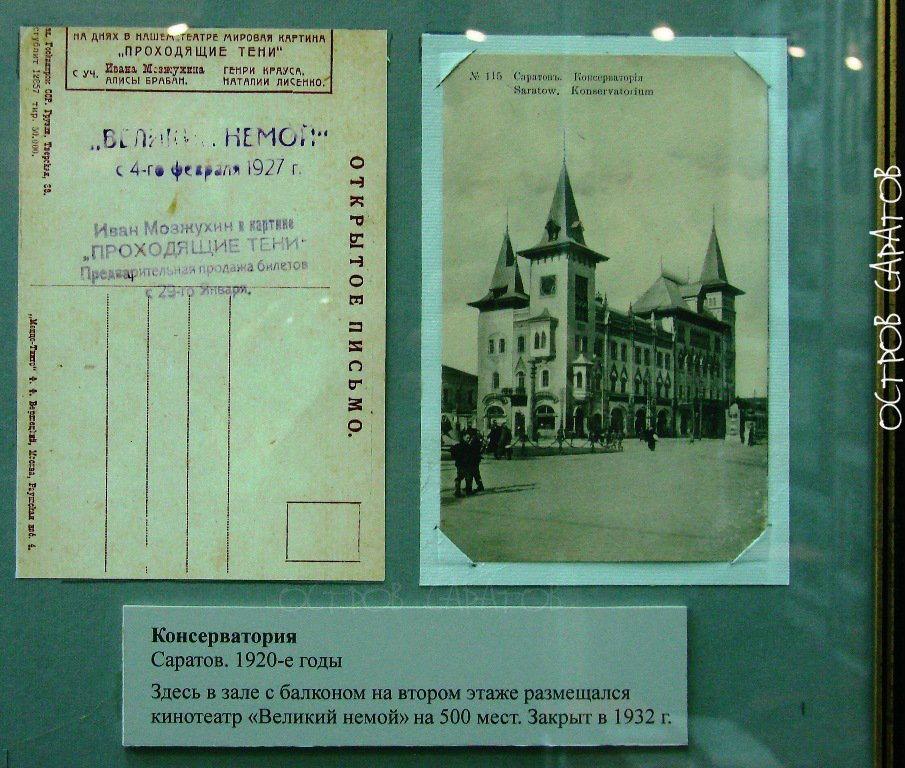 НА ДНЯХ В НАШЕМ ТЕАТРЕ МИРОВАЯ КАРТИНА
„ПРОХОДЯЩИЕ ТЕНИ“
С УЧ. Ивана Мозжухина ГЕНРИ КРАУСА,
АЛИСЫ БРАБАН. НАТАЛИИ ЛИСЕНКО.
„ВЕЛИКИЙ НЕМОЙ“
с 4-го февраля 1927 г.
Иван Мозжухин в картине
„ПРОХОДЯЩИЕ ТЕНИ“
Предварительная продажа билетов
с 29-го Января.
ОТКРЫТОЕ ПИСЬМО.
№ 115 Саратовъ. Консерваторія
Saratow. Konservatorium
ОСТРОВ САРАТОВ
ОСТРОВ САРАТОВ
Консерватория
Саратов. 1920-е годы
Здесь в зале с балконом на втором этаже размещался
кинотеатр «Великий немой» на 500 мест. Закрыт в 1932 г.